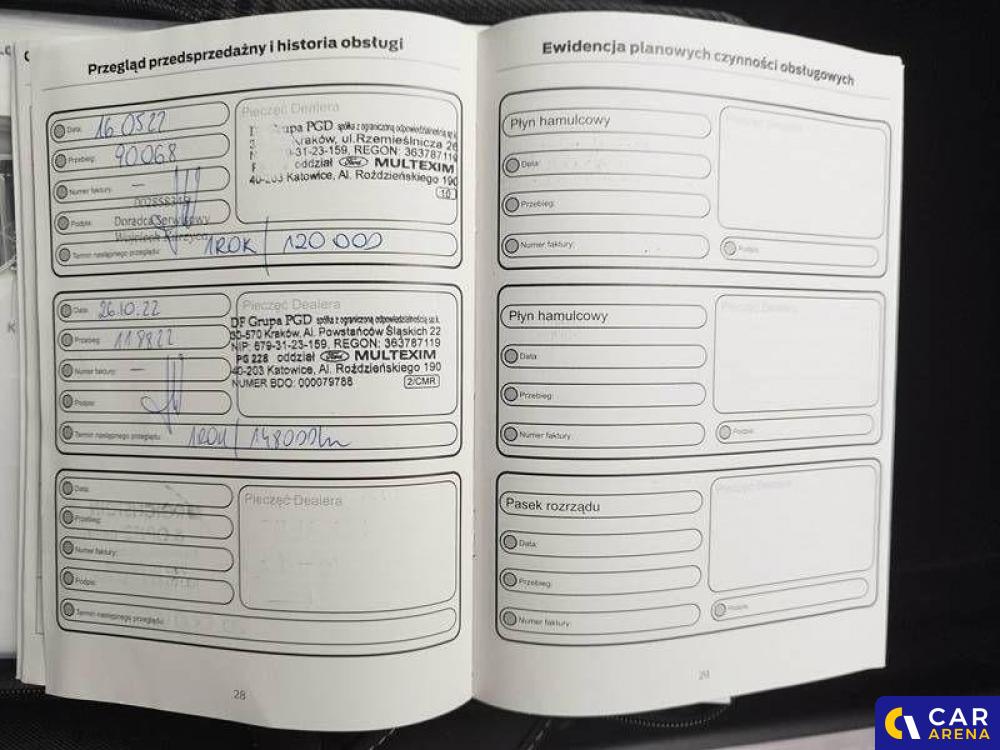 Przegląd przedsprzedażny i historia obsługi
Data: 16.05.22
Przebieg: 90068
Numer faktury: —
Podpis: Doradca Serwisowy
Termin następnego przeglądu: 1 ROK / 120 000
Pieczęć Dealera
Grupa PGD spółka z ograniczoną odpowiedzialnością sp.k.
Kraków, ul.Rzemieślnicza 26
-31-23-159, REGON: 363787119
oddział Ford MULTEXIM
40-203 Katowice, Al. Roździeńskiego 190
10
Data: 26.10.22
Przebieg: 118822
Numer faktury: —
Podpis:
Termin następnego przeglądu: 1 ROK / 148000km
Pieczęć Dealera
DF Grupa PGD spółka z ograniczoną odpowiedzialnością sp.k.
30-570 Kraków, Al. Powstańców Śląskich 22
NIP: 679-31-23-159, REGON: 363787119
PG 228 oddział Ford MULTEXIM
40-203 Katowice, Al. Roździeńskiego 190
NUMER BDO: 000079788
2/CMR
Data:
Przebieg:
Numer faktury:
Podpis:
Termin następnego przeglądu:
Pieczęć Dealera
28
Ewidencja planowych czynności obsługowych
Płyn hamulcowy
Data:
Przebieg:
Numer faktury:
Pieczęć Dealera
Podpis:
Płyn hamulcowy
Data:
Przebieg:
Numer faktury:
Pieczęć Dealera
Podpis:
Pasek rozrządu
Data:
Przebieg:
Numer faktury:
Pieczęć Dealera
Podpis:
29
CAR
ARENA